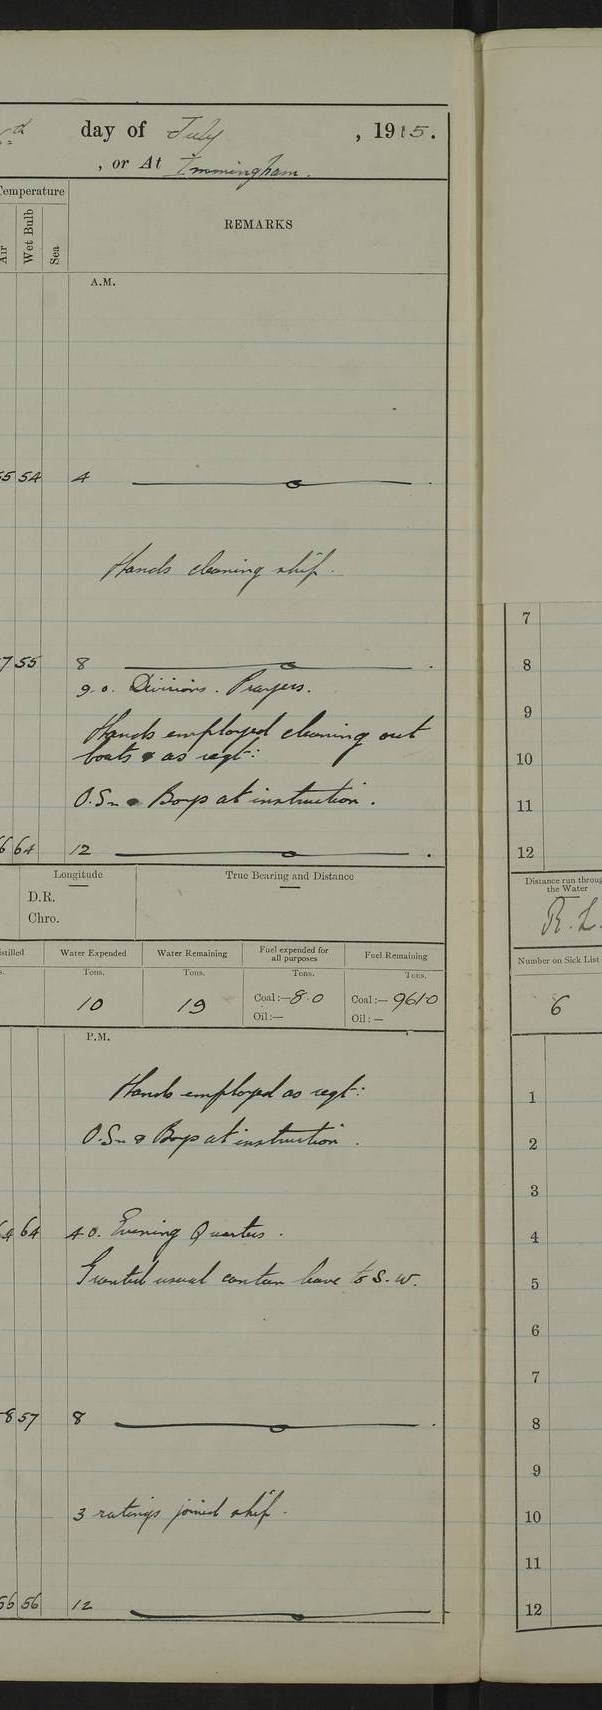 day of July , 1915.
, or At Immingham.
Temperature
Air
Wet Bulb
Sea
REMARKS
A.M.
55 54
4
Hands cleaning ship.
7 55
8
9.0. Divisions. Prayers.
Hands employed cleaning out
boats & as reqt:
O.Sn & Boys at instruction.
6 64
12
Longitude
True Bearing and Distance
D.R.
Chro.
Water Expended
Water Remaining
Fuel expended for
all purposes
Fuel Remaining
Tons.
Tons.
Tons.
Tons.
10
19
Coal:—80
Coal:— 9610
Oil:—
Oil:—
P.M.
Hands employed as reqt:
O.Sn & Boys at instruction.
64
4.0. Evening Quarters.
Granted usual canteen leave to S.W.
8 57
8
3 ratings joined ship.
56 56
12
7
8
9
10
11
12
Distance run throug
the Water
R.L.
Number on Sick List
6
1
2
3
4
5
6
7
8
9
10
11
12